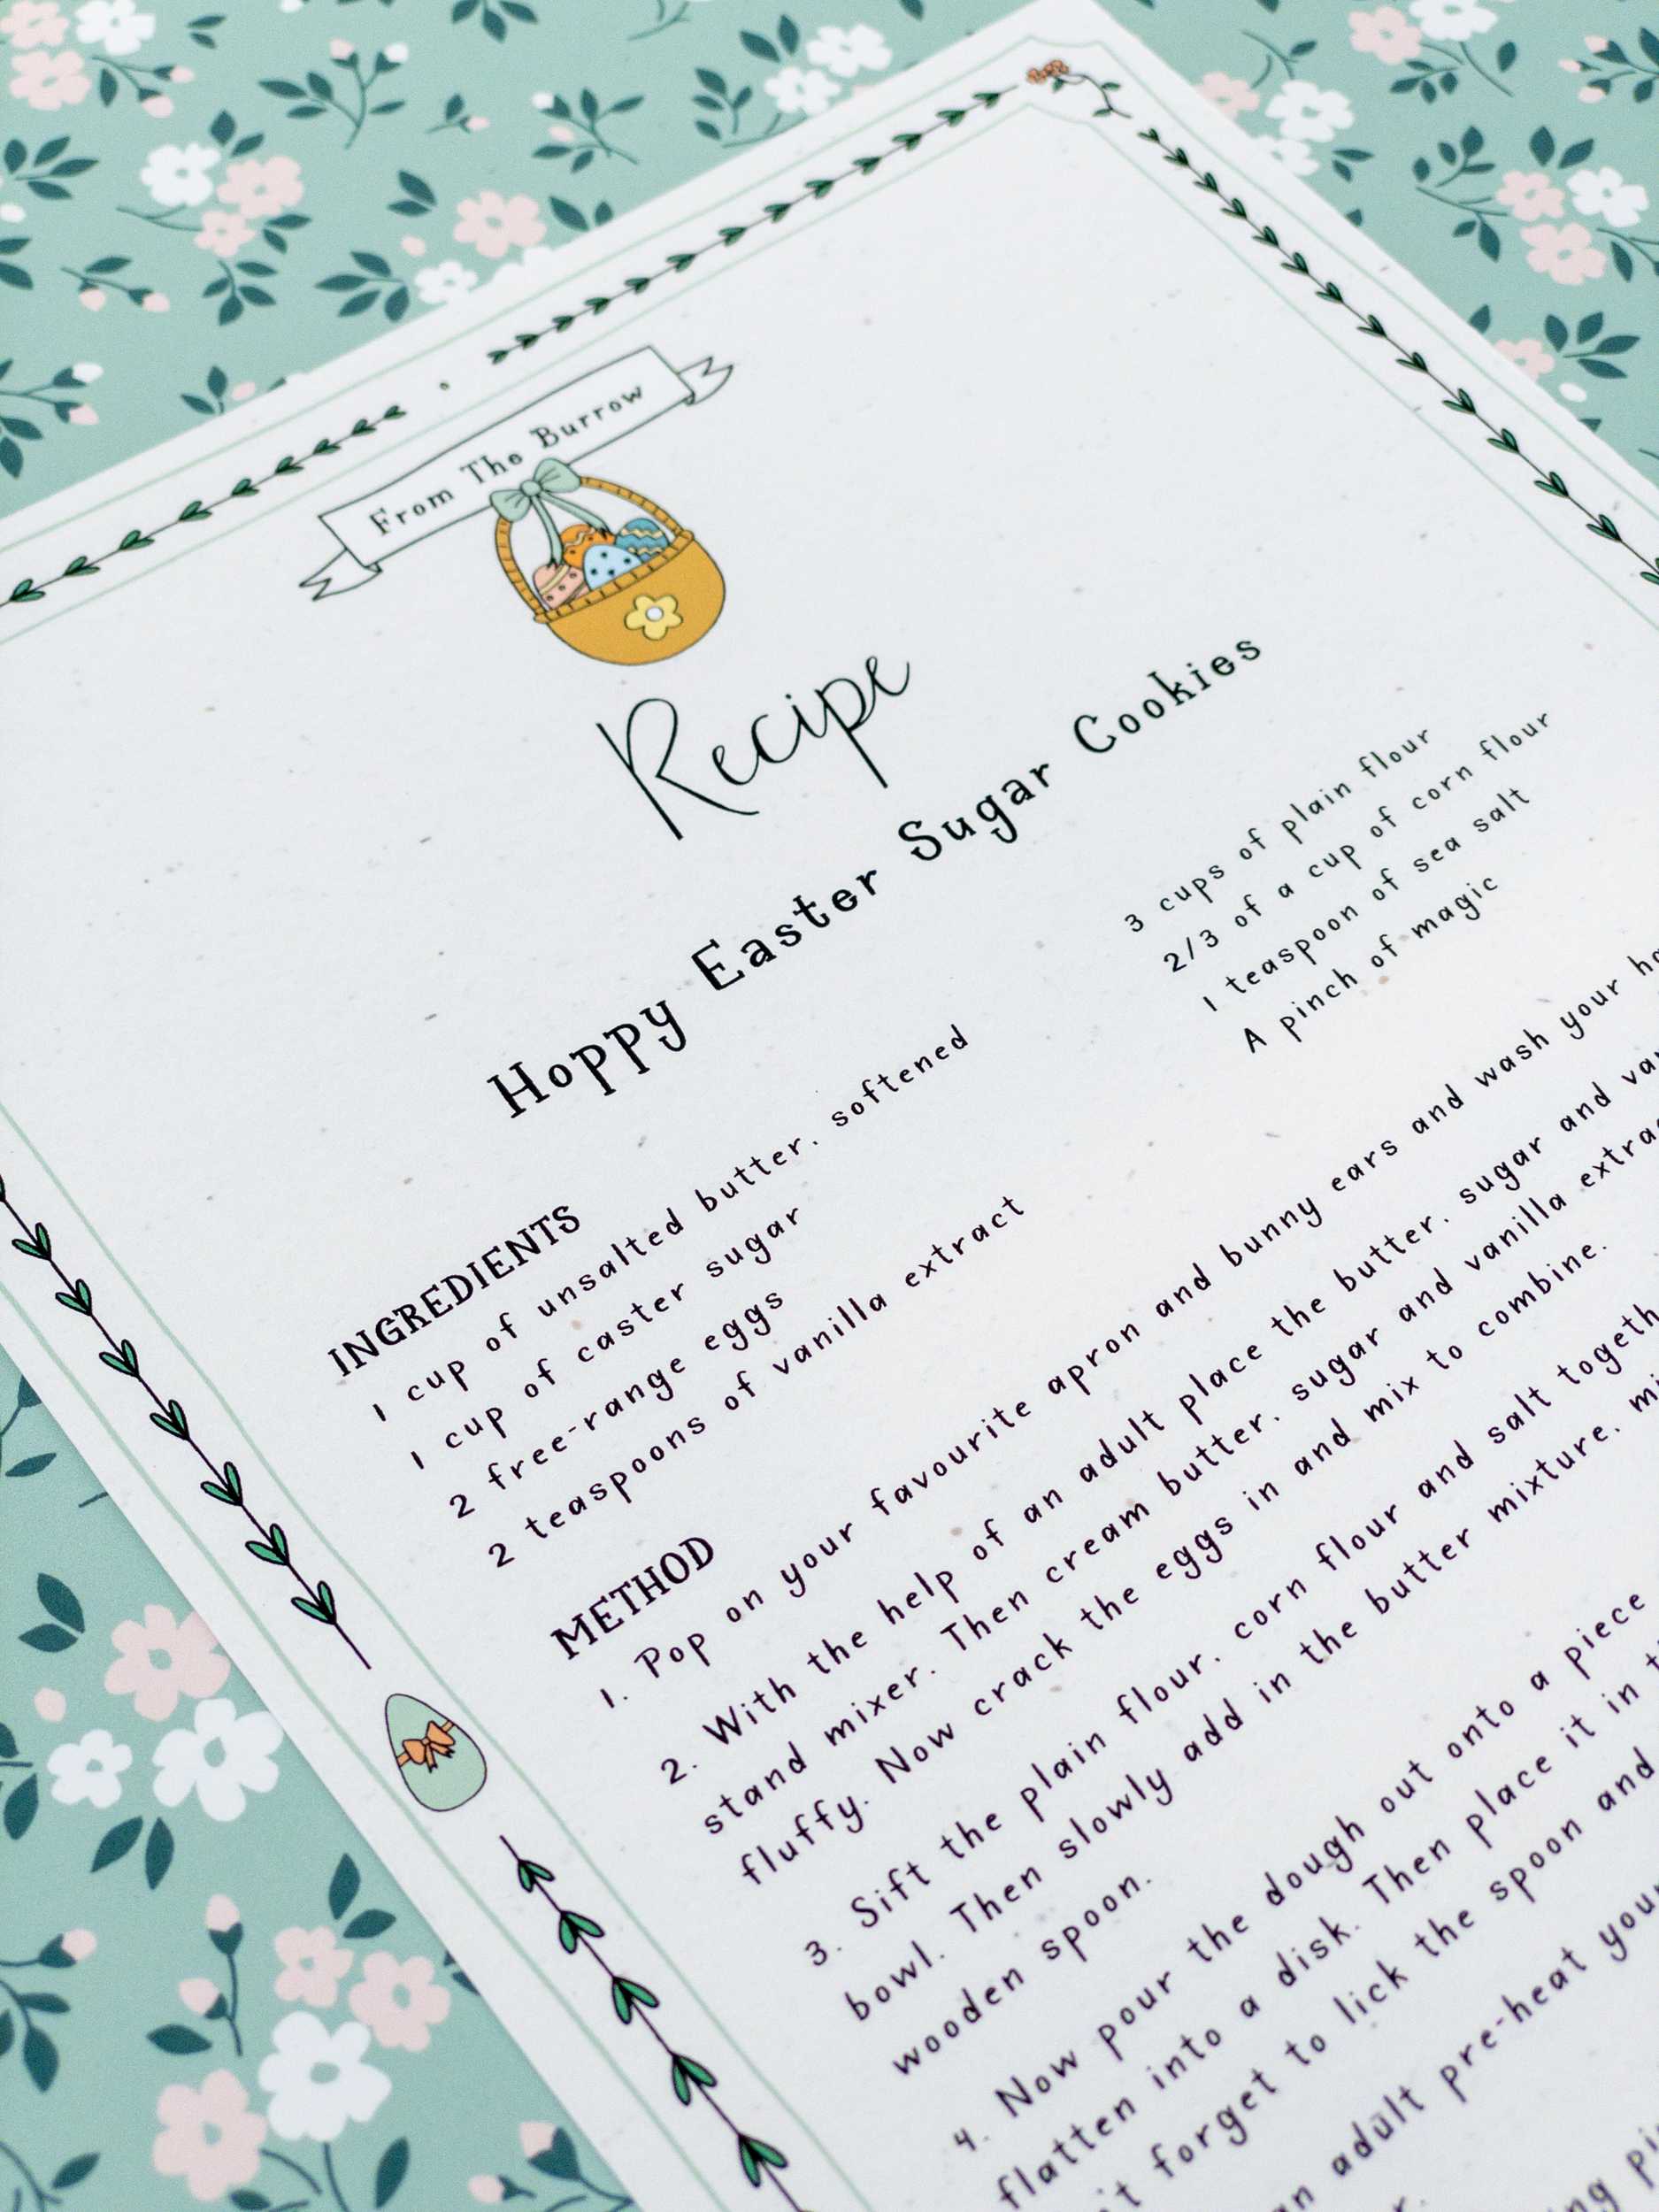 From The Burrow
Recipe
Hoppy Easter Sugar Cookies
INGREDIENTS
1 cup of unsalted butter, softened
1 cup of caster sugar
2 free-range eggs
2 teaspoons of vanilla extract
3 cups of plain flour
2/3 of a cup of corn flour
1 teaspoon of sea salt
A pinch of magic
METHOD
1. Pop on your favourite apron and bunny ears and wash your
2. With the help of an adult place the butter, sugar and
stand mixer. Then cream butter, sugar and vanilla
fluffy. Now crack the eggs in and mix to combine.
3. Sift the plain flour, corn flour and salt
bowl. Then slowly add in the butter mixture,
wooden spoon.
4. Now pour the dough out onto a piece
flatten into a disk. Then place it in
forget to lick the spoon and
adult pre-heat